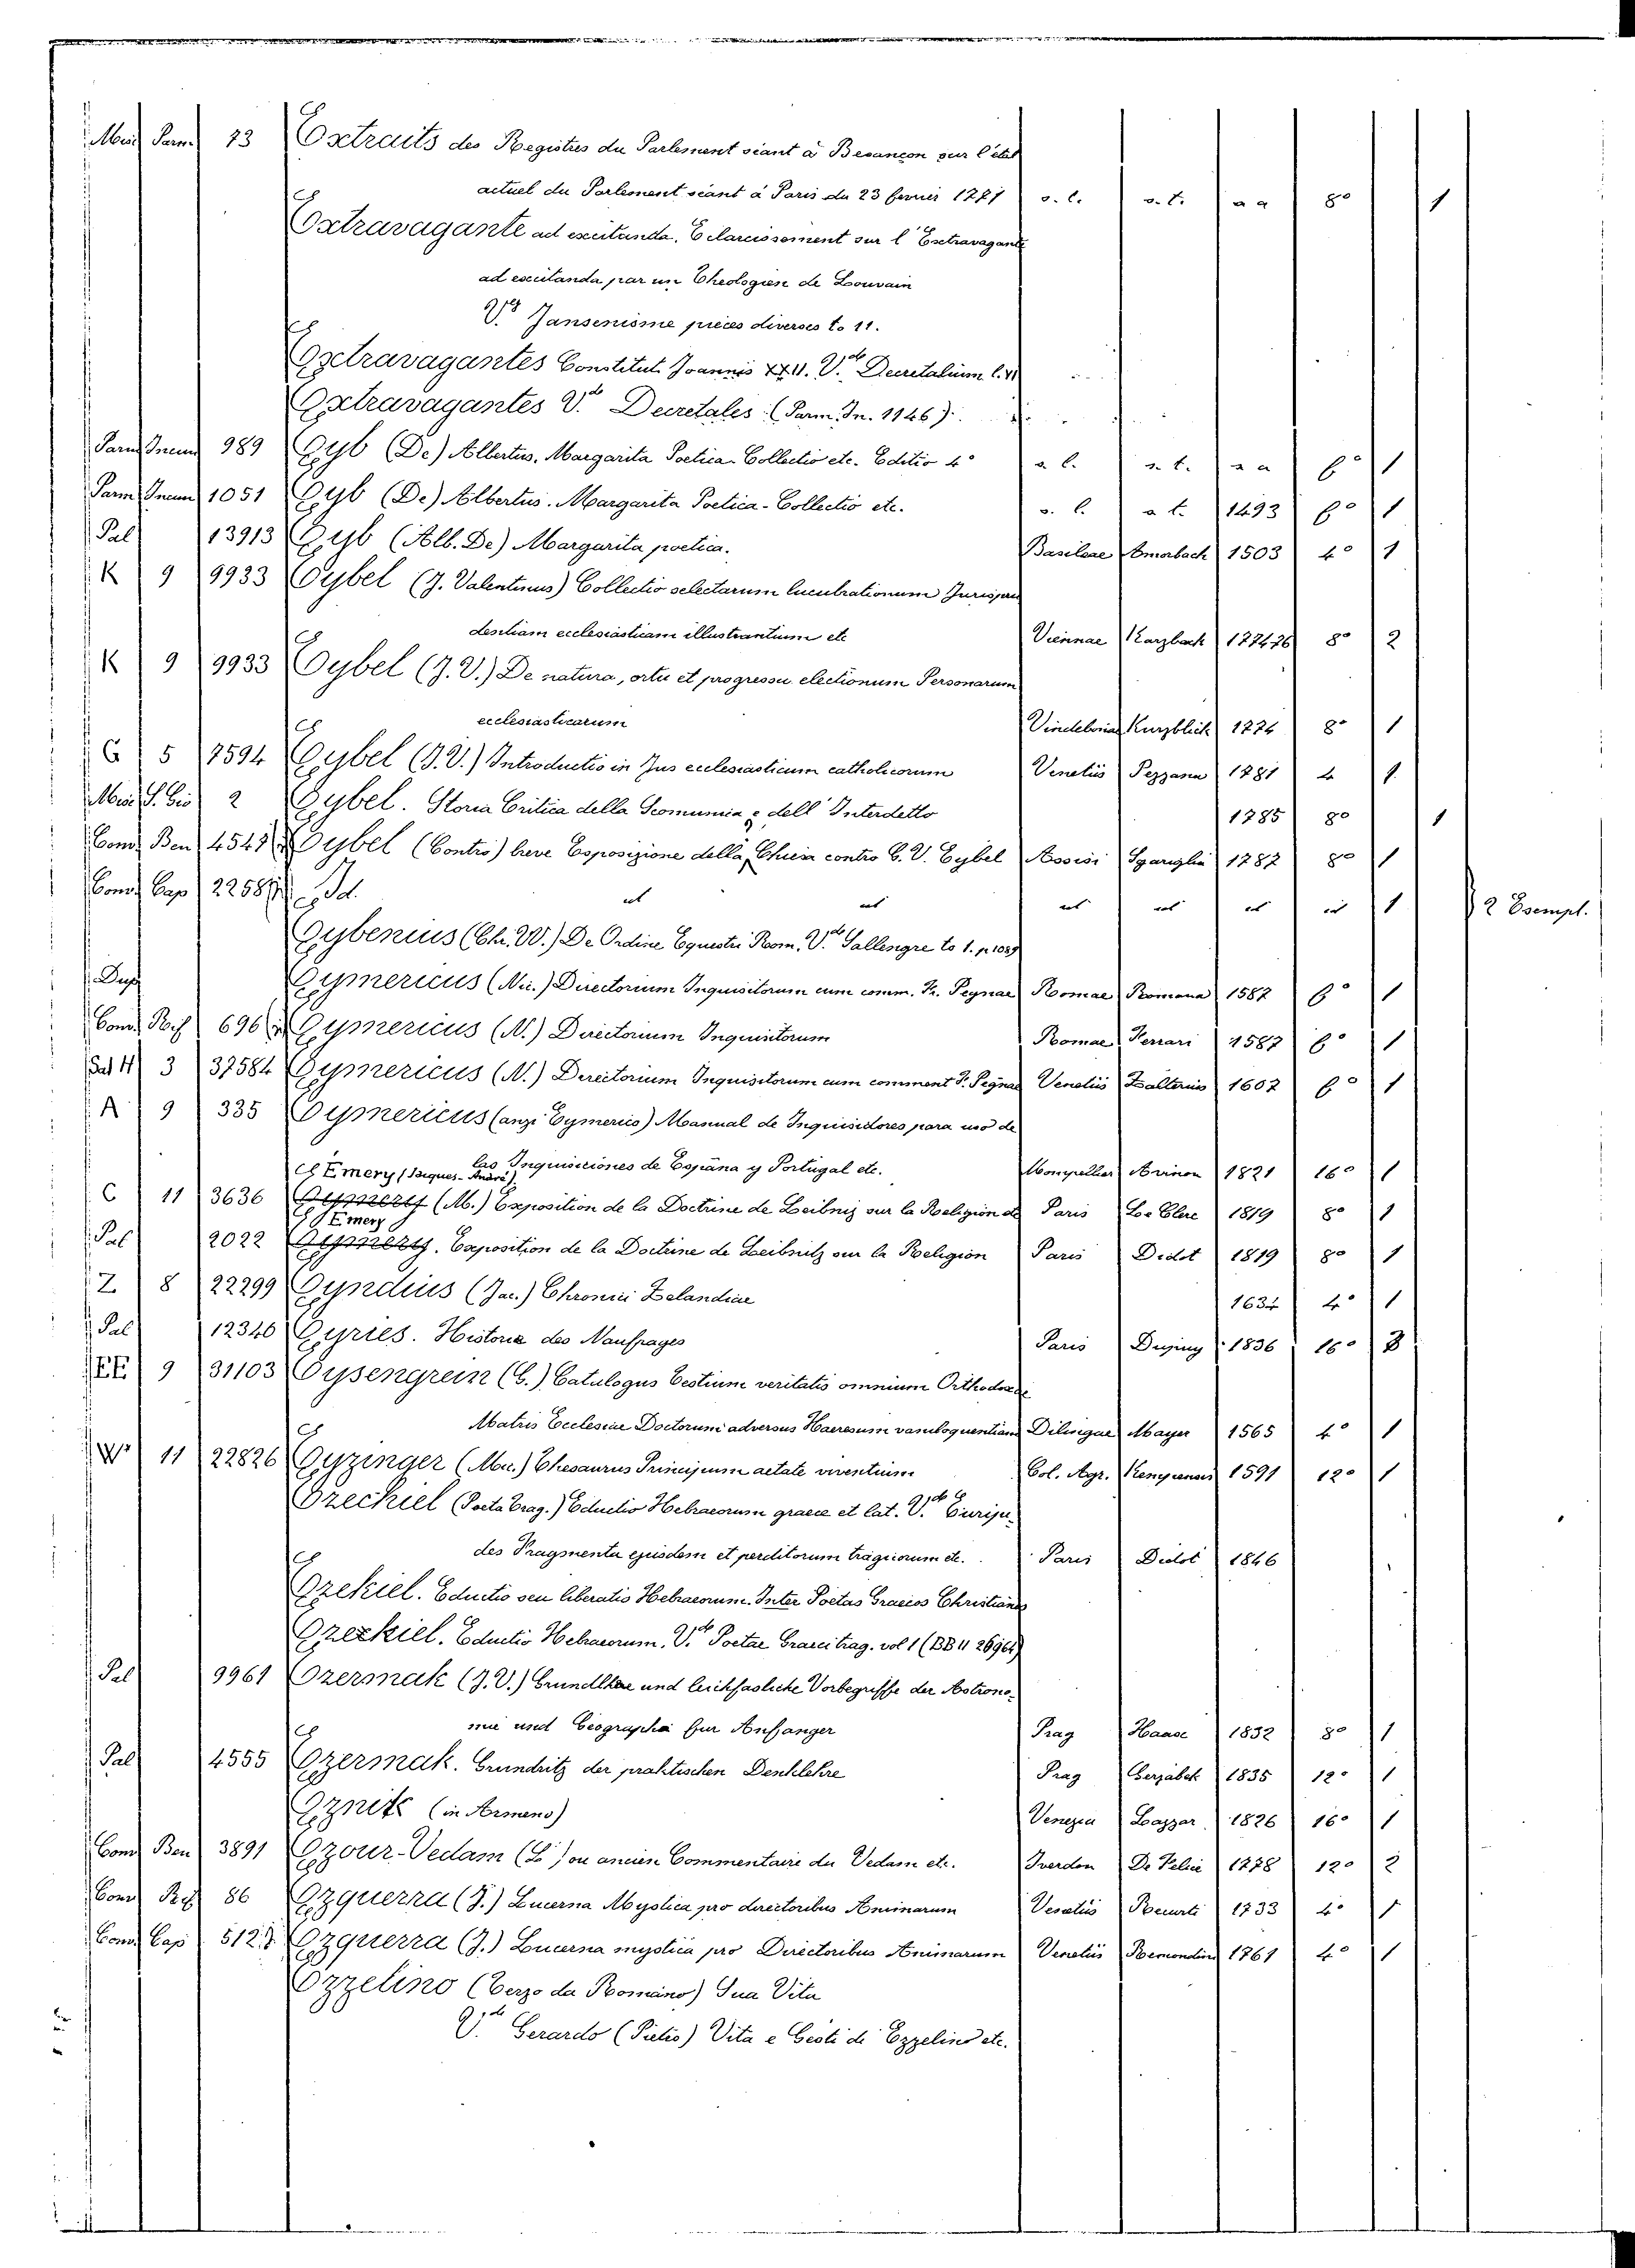 Misc Parm. 73 Extraits des Registres du Parlement séant à Besançon sur l'état
actuel du Parlement séant à Paris du 23 fevrier 1771 s. l. s. t. a a 8° 1
Extravagante ad execitanda. Eclarcissement sur l'Extravagante
ad execitanda par un Theologien de Louvain
V.de Jansenisme pièces diverses to 11.
Extravagantes Constitut. Joannis XXII. V.de Decretalium l. VI
Extravagantes V.de Decretales (Parm. In. 1146).
Parm Incun 989 Eyb (De) Albertus. Margarita Poetica. Collectio etc. Editio 4° s. l. s. t. a a 6° 1
Parm Incun 1051 Eyb (De) Albertus. Margarita Poetica - Collectio etc. s. l. s. t. 1493 6° 1
Pal 13913 Eyb (Alb. De) Margarita poetica. Basileae Amorbach 1503 4° 1
K 9 9933 Eybel (J. Valentinus) Collectio selectarum lucubrationum Jurispru
dentiam ecclesiasticam illustrantium etc Viennae Karzbach 177476 8° 2
K 9 9933 Eybel (J. V.) De natura, ortu et progressu electionum Personarum
ecclesiasticarum Vindebonae Kurzblich 1774 8° 1
G 5 7594 Eybel (J. V.) Introductio in Jus ecclesiasticum catholicorum Venetiis Pezzana 1781 4 1
Misc S. Gio 2 Eybel. Storia Critica della Scomunica e dell' Interdetto 1785 8° 1
Conv Ben 4547 Eybel (Contro) breve Esposizione della Chiesa contro G. V. Eybel Assisi Sgariglia 1787 8° 1
Conv Cap 22587 Id. id id id id id id 1 2 Esempl.
Eybenius (Chr. W.) De Ordine Equestri Rom. V.de Sallengre to 1. p. 1089
Dup Eymericus (Nic.) Directorium Inquisitorum cum comm. Fr. Pegnae Romae Romana 1587 6° 1
Conv Rif 696 Eymericus (N.) Directorium Inquisitorum Romae Ferrari 1587 6° 1
Sal H 3 37584 Eymericus (N.) Directorium Inquisitorum cum comment F. Pegnae Venetiis Zalterius 1607 6° 1
A 9 335 Eymericus (anzi Eymerico) Manual de Inquisidores para uso de
las Inquisiciones de España y Portugal etc. Monpellier Avinon 1821 16° 1
Emery (Jacques-André)
C 11 3636 Eymery (M.) Exposition de la Doctrine de Leibniz sur la Religion de Paris Le Clere 1819 8° 1
Emery
Pal 2022 Eymery. Exposition de la Doctrine de Leibnitz sur la Religion Paris Didot 1819 8° 1
Z 8 22299 Eyndius (Jac.) Chronici Zelandiae 1634 4° 1
Pal 12340 Eyries. Historie des Naufrages Paris 1836 16°
EE 9 31103 Eysengrein (G.) Catalogus Testium veritatis omnium Orthodoxae
Matris Ecclesiae Doctorum adversus Haeresum vaniloquentiam Dilingae Mayer 1565 4° 1
W 11 22826 Eyzinger (Mic.) Thesaurus Principum aetate viventium Col. Agr. Kempensis 1591 12° 1
Ezechiel (Poeta Trag.) Eductio Hebraeorum graece et lat. V.de Euripi-
des Fragmenta ejusdem et perditorum tragicorum etc. Paris Didot 1846
Ezekiel. Eductio seu liberatio Hebraeorum. Inter Poetas Graecos Christianos
Ezezkiel. Eductio Hebraeorum. V.de Poetae Graeci trag. vol 1 (BB 11 26964)
Pal 9961 Ezermak (J. V.) Grundlhre und leichfasliche Vorbegriffe der Astrono-
mie und Geographie fur Anfanger Prag Haase 1832 8° 1
Pal 4555 Ezermak. Grundritz der praktischen Denklehre Prag 1835 12° 1
Eznik (in Armeno) Venezia Lazzar. 1826 16° 1
Conv Ben 3891 Ezour-Vedam (L') ou ancien Commentaire du Vedam etc. Iverdon De Felice 1778 12° 2
Conv Rif 86 Ezquerra (F.) Lucerna Mystica pro directoribus Animarum Venetiis Recurti 1733 4° 1
Conv Cap 5127 Ezquerra (J.) Lucerna mystica pro Directoribus Animarum Venetiis Remondini 1761 4° 1
Ezzelino (Terzo da Romano) Sua Vita
V.de Gerardo (Pietro) Vita e Gesti di Ezzelino etc.